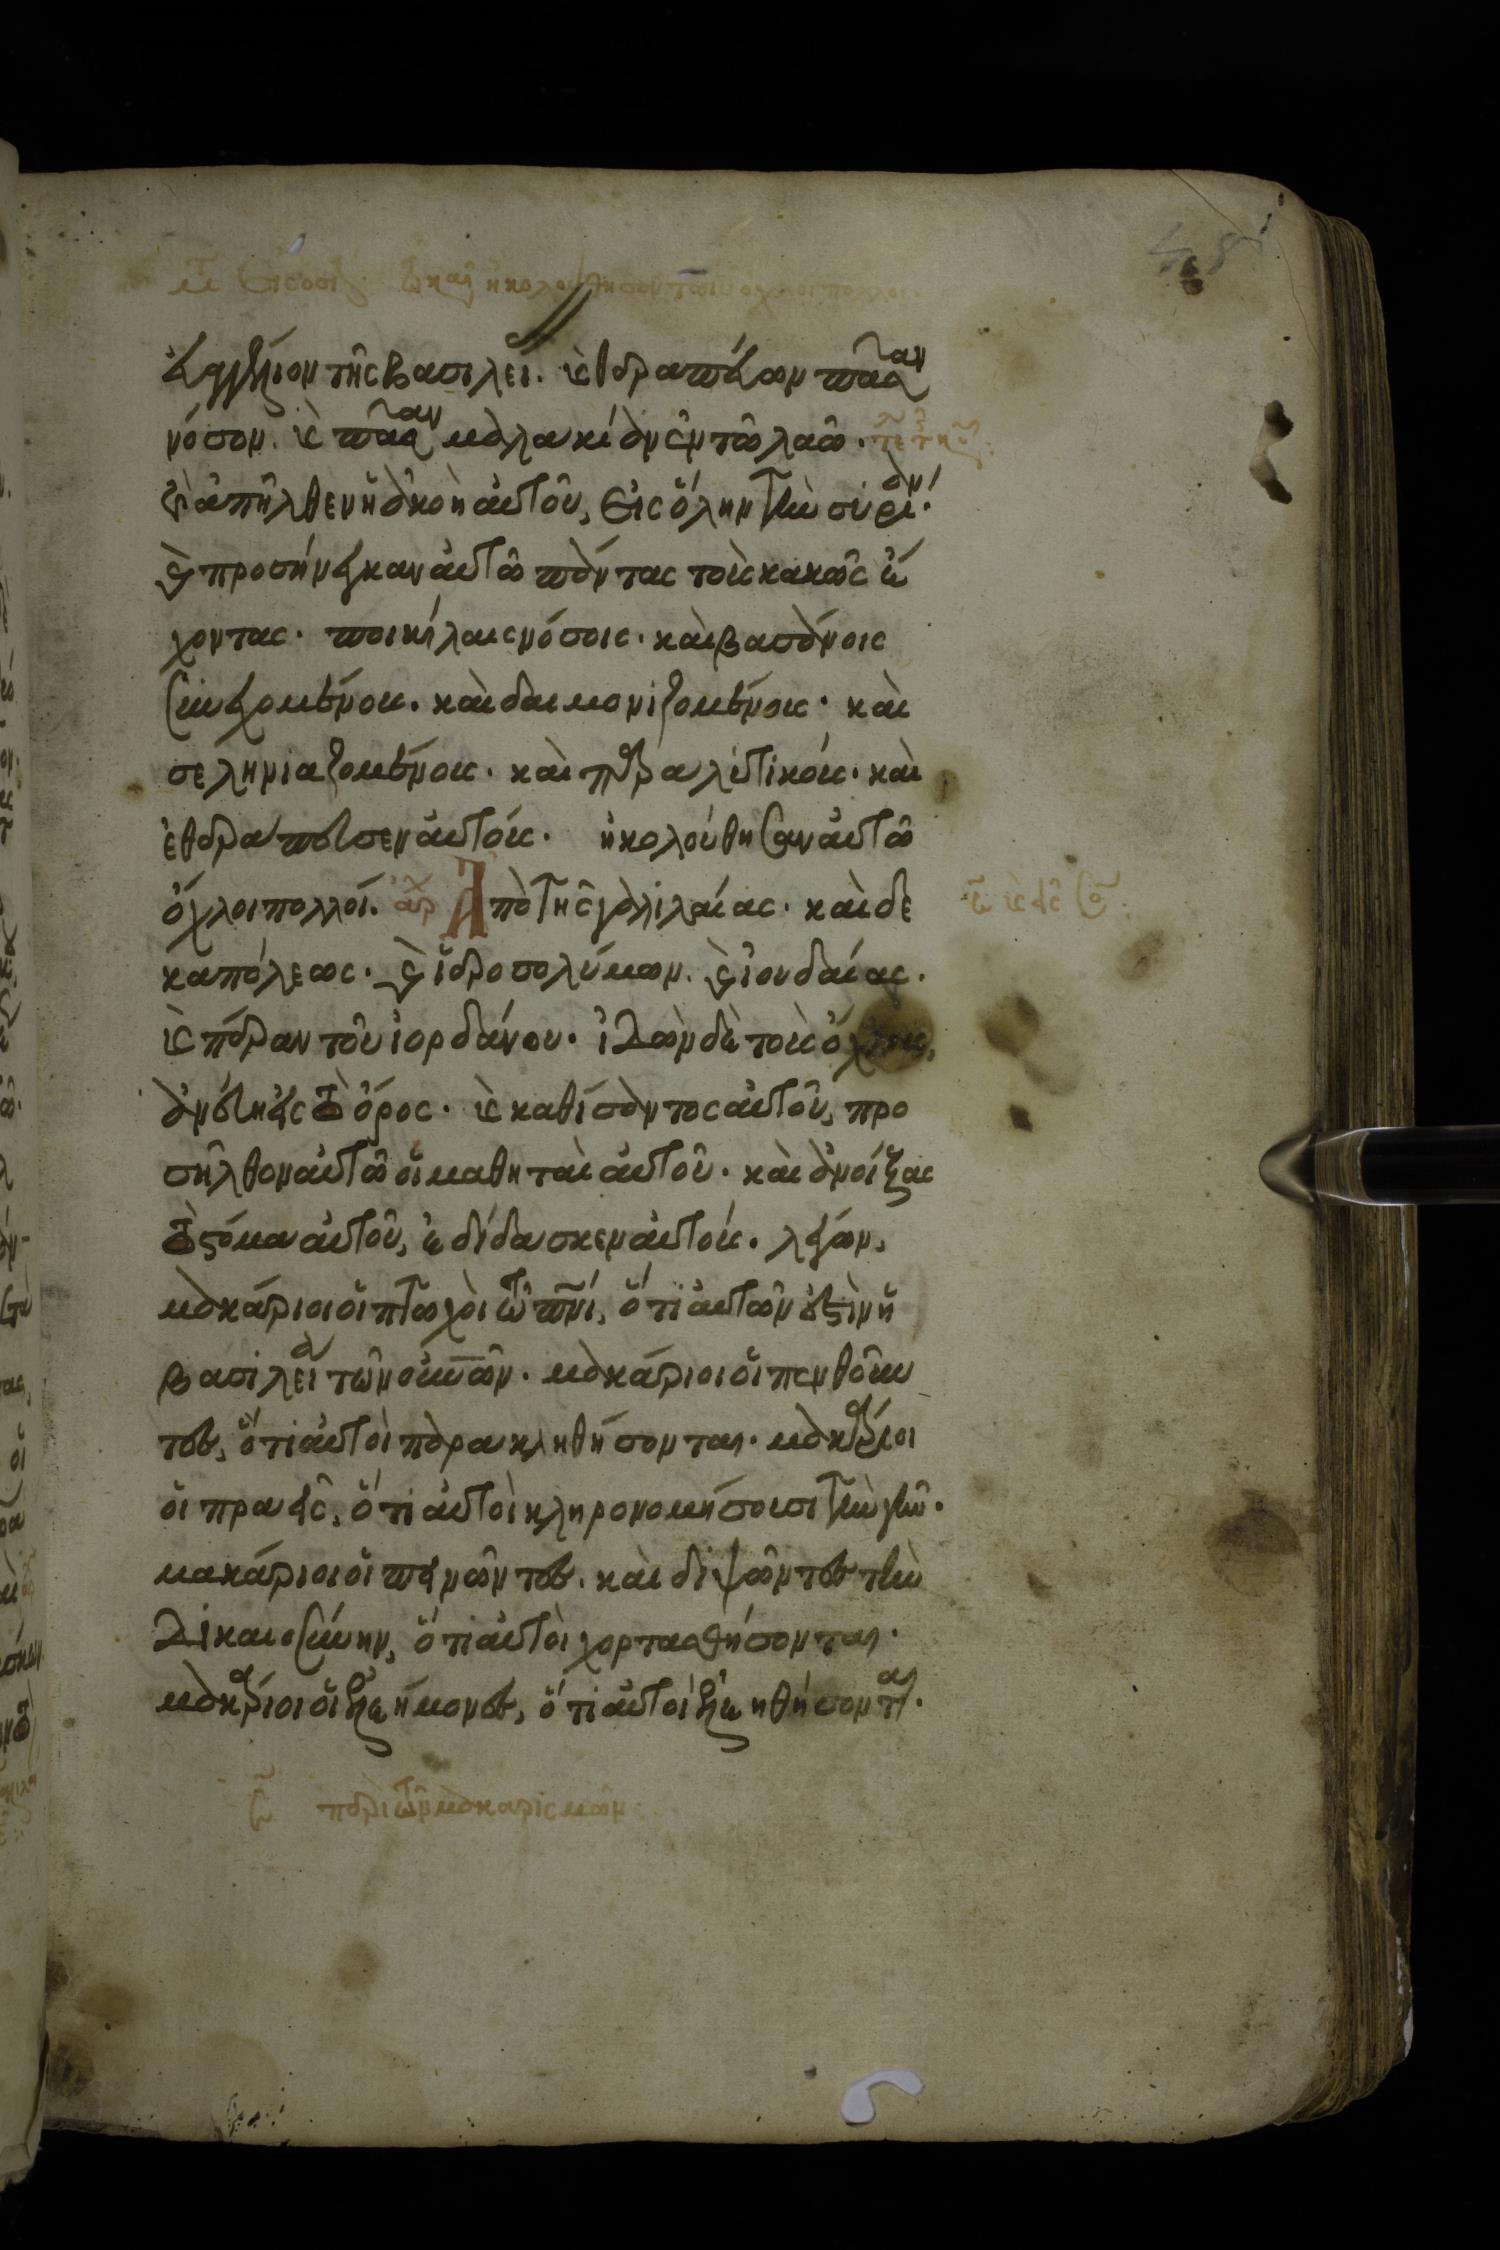 τῶ καιρ ἠκολούθησαν τῶ ιυ ὄχλοι πολλοί.
εὐαγγέλιον τῆς βασιλεί. καὶ θεραπεύων πᾶσαν
νόσον. καὶ πᾶσαν μαλακίαν ἐν τῶ λαῶ.
καὶ ἀπῆλθεν ἡ ἀκοὴ αὐτοῦ, εἰς ὅλην τὴν συρίαν.
καὶ προσήνεγκαν αὐτῶ πάντας τοὺς κακῶς ἔ
χοντας. ποικίλαις νόσοις. καὶ βασάνοις
συνεχομένους. καὶ δαιμονιζομένους. καὶ
σεληνιαζομένους. καὶ παραλυτικούς. καὶ
ἐθεράπευσεν αὐτούς. ἠκολούθησαν αὐτῶ
ὄχλοι πολλοί. ἀρχ Ἀπὸ τῆς γαλιλαίας. καὶ δε
καπόλεως. καὶ ἱεροσολύμων. καὶ ἰουδαίας.
καὶ πέραν τοῦ ἰορδάνου. ἰδὼν δὲ τοὺς ὄχλους,
ἀνέβη εἰς τὸ ὄρος. καὶ καθίσαντος αὐτοῦ, προ
σῆλθον αὐτῶ οἱ μαθηταὶ αὐτοῦ. καὶ ἀνοίξας
τὸ στόμα αὐτοῦ, ἐδίδασκεν αὐτούς. λέγων,
μακάριοι οἱ πτωχοὶ τῶ πνι, ὅτι αὐτῶν ἐστὶν ἡ
βασιλεία τῶν οὐνῶν. μακάριοι οἱ πενθοῦν
τες, ὅτι αὐτοὶ παρακληθήσονται. μακάριοι
οἱ πραεῖς, ὅτι αὐτοὶ κληρονομήσουσι τὴν γῆν.
μακάριοι οἱ πεινῶντες. καὶ διψῶντες τὴν
δικαιοσύνην, ὅτι αὐτοὶ χορτασθήσονται.
μακάριοι οἱ ἐλεήμονες, ὅτι αὐτοὶ ἐλεηθήσονται.
περὶ τῶν μακαρισμῶν